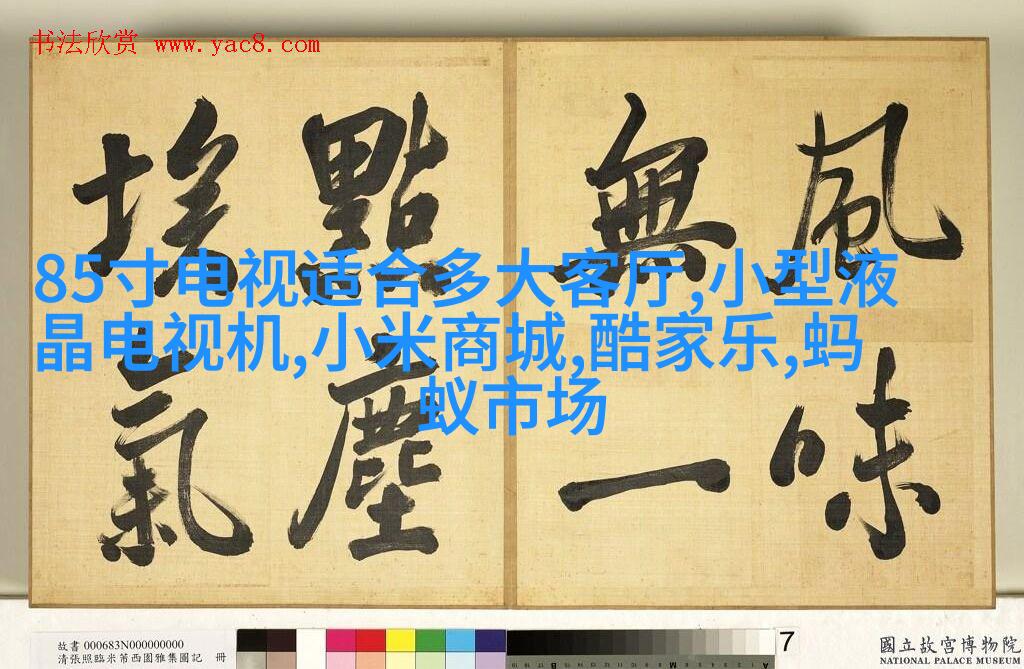 书法欣赏 www.yac8.com
風味
無一
點塵
埃氣
85寸电视适合多大客厅,小型液
晶电视机,小米商城,酷家乐,蚂
蚁市场
故書 000683N000000000
清張照臨米芾西園雅集圖記 冊
7
國立故宮博物院
NATIONAL PALACE MUSEUM